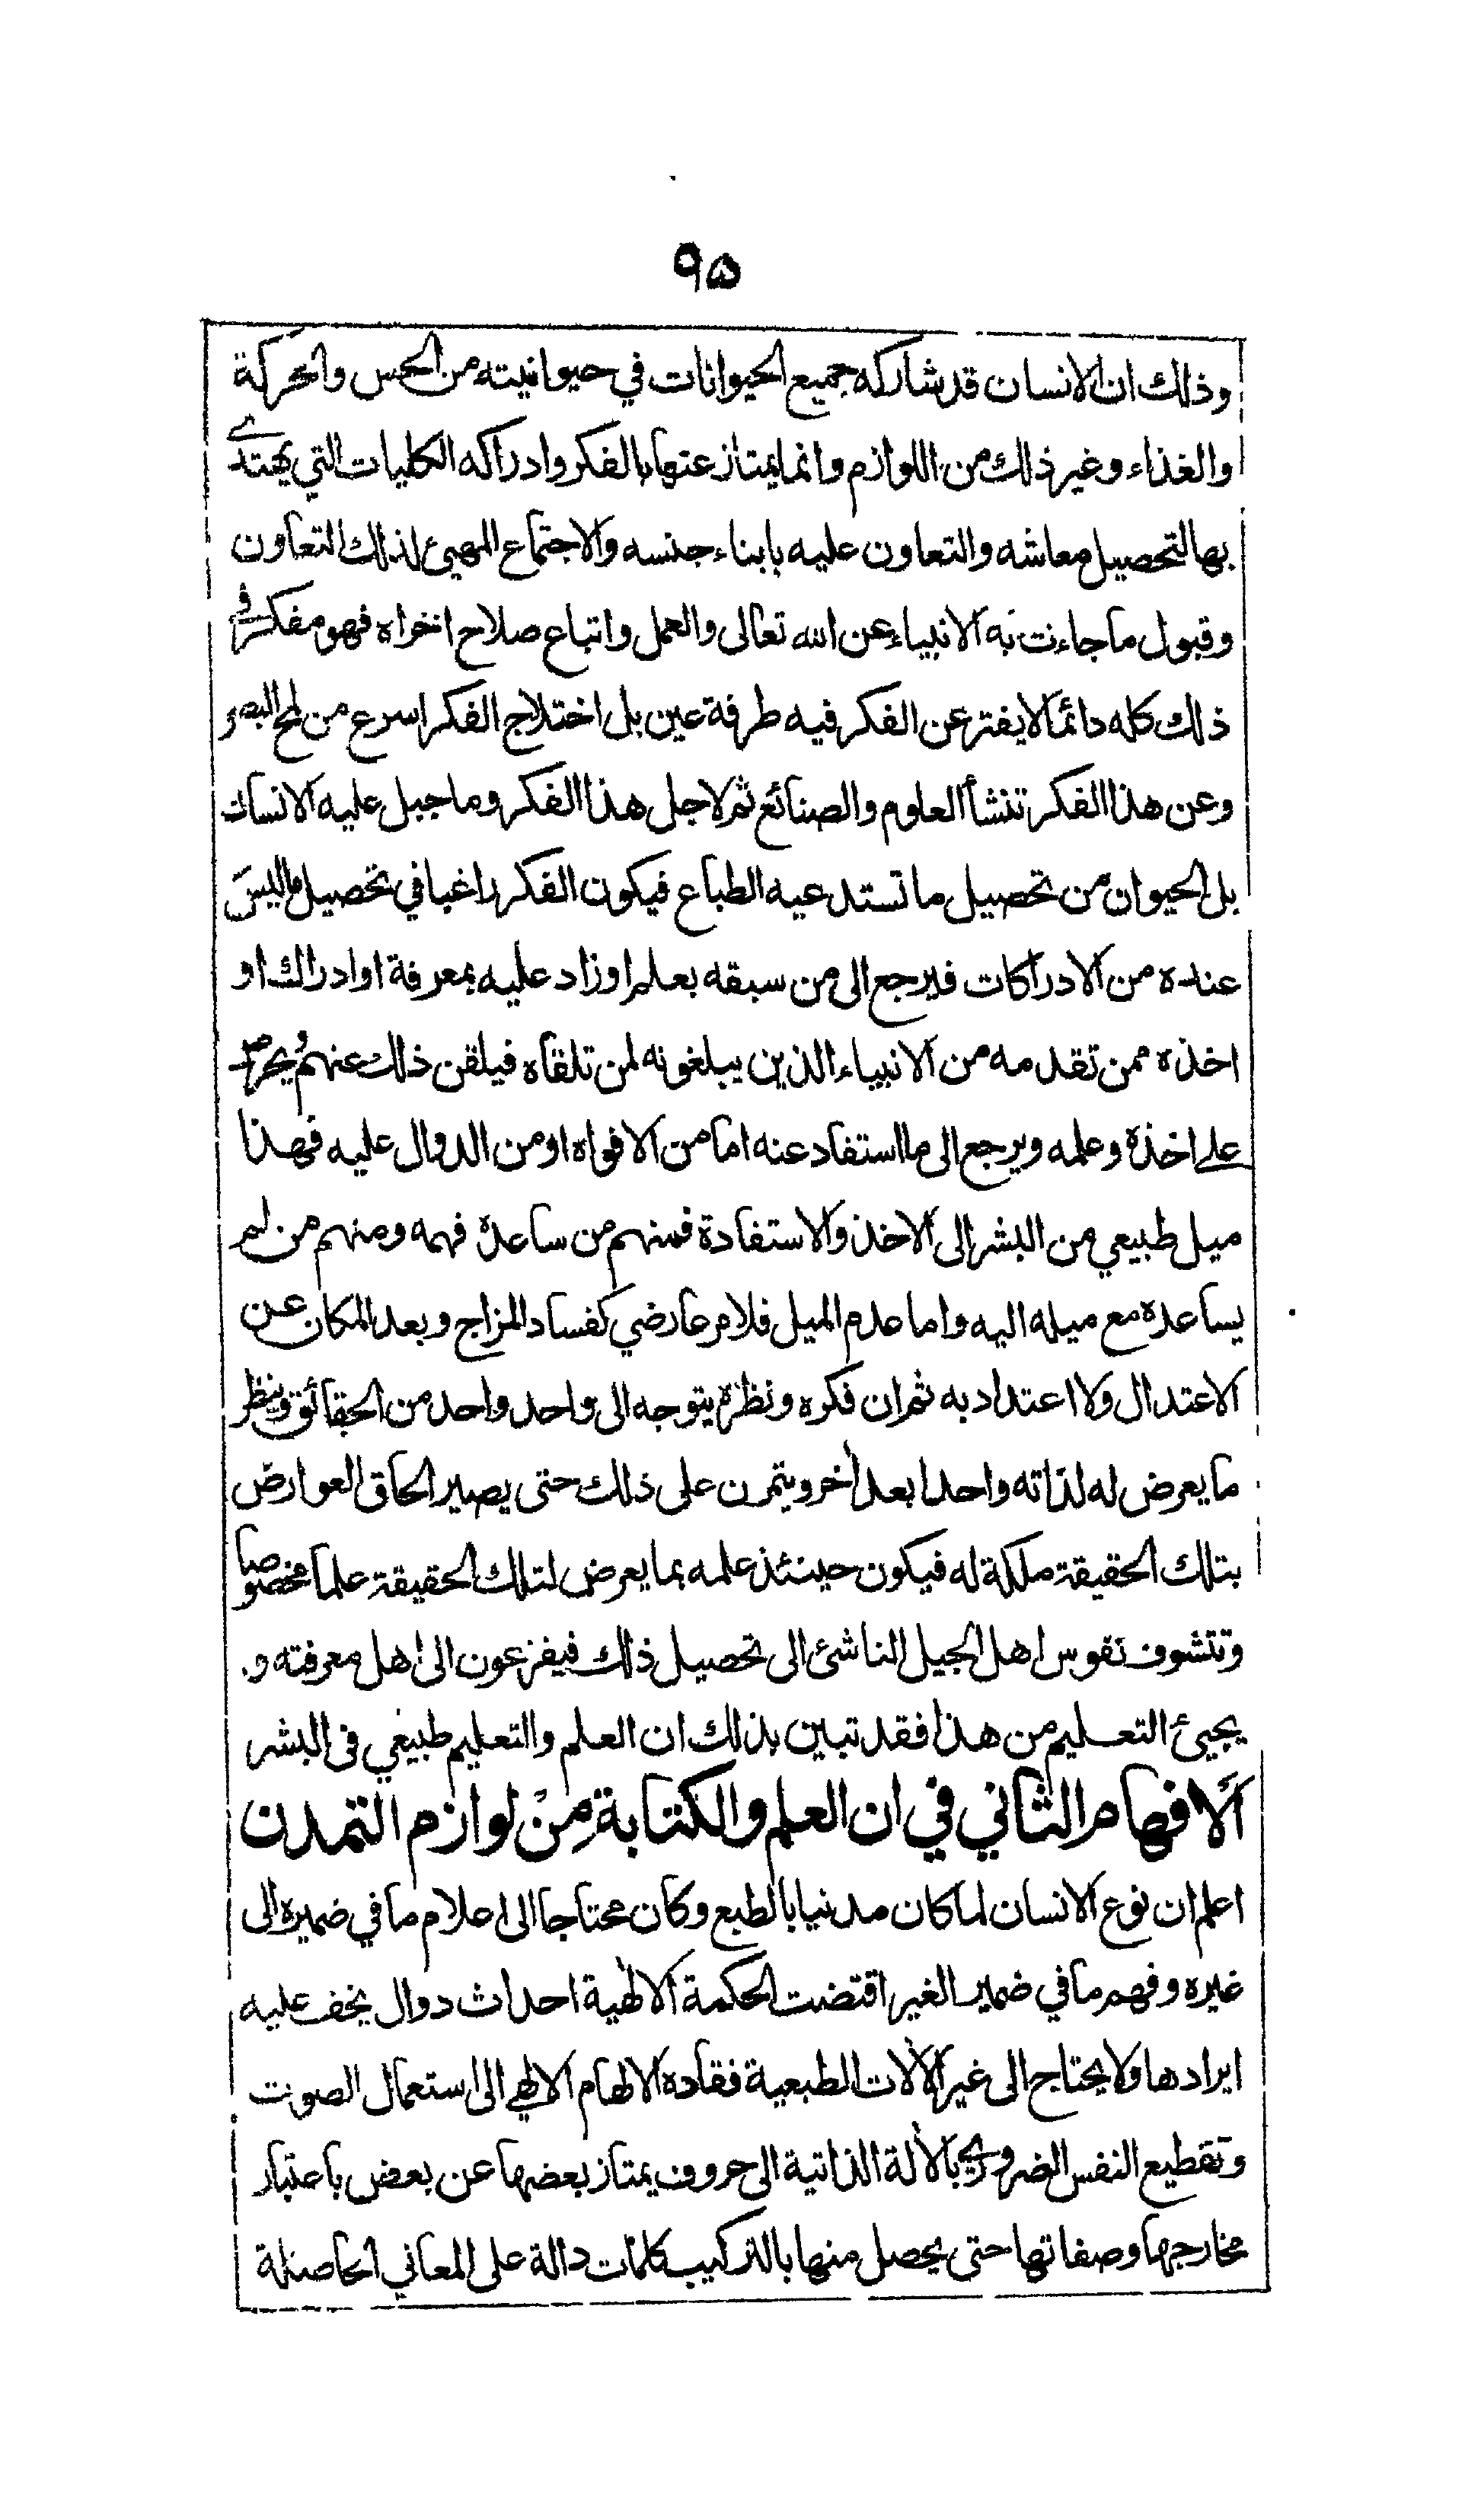 ٩٥
وذلك ان الانسان قد شاركه جميع الحيوانات في حيوانيته من الحس والحركة
والغذاء وغير ذلك من اللوازم وانما يمتاز عنها بالفكر وادراكه الكليات التي يهتدي
بها لتحصيل معاشه والتعاون عليه بابناء جنسه والاجتماع المهيئ لذلك التعاون
وقبول ما جاءت به الانبياء عن الله تعالى والعمل واتباع صلاح اخراه فهو مفكر في
ذلك كله دائما لا يفتر عن الفكر فيه طرفة عين بل اختلاج الفكر اسرع من لمح البصر
وعن هذا الفكر تنشأ العلوم والصنائع ثم لاجل هذا الفكر وما جبل عليه الانسان
بل الحيوان من تحصيل ما تستدعيه الطباع فيكون الفكر راغبا في تحصيل ما ليس
عنده من الادراكات فيرجع الى من سبقه بعلم او زاد عليه بمعرفة او ادراك او
اخذه ممن تقدمه من الانبياء الذين يبلغونه لمن تلقاه فيلقن ذلك عنهم ويحرص
على اخذه وعلمه ويرجع الى ما استفاد عنه اما من الافواه او من الدوال عليه فهذا
ميل طبيعي من البشر الى الاخذ والاستفادة فمنهم من ساعده فهمه ومنهم من لم
يساعده مع ميله اليه واما عدم الميل فلامر عارضي كفساد المزاج وبعد المكان عن
الاعتدال ولا اعتداد به ثم ان فكره ونظره يتوجه الى واحد واحد من الحقائق وينظر
ما يعرض له لذاته واحدا بعد اخر ويتمرن على ذلك حتى يصير الحاق العوارض
بتلك الحقيقة ملكة له فيكون حينئذ علمه بما يعرض لتلك الحقيقة علما مخصوصا
وتتشوف نفوس اهل الجيل الناشئ الى تحصيل ذلك فيفزعون الى اهل معرفته و
يجيئ التعليم من هذا فقد تبين بذلك ان العلم والتعليم طبيعي في البشر
ألافهام الثاني في ان العلم والكتابة مِنْ لوازم التمدن
اعلم ان نوع الانسان لما كان مدنيا بالطبع وكان محتاجا الى اعلام ما في ضميره الى
غيره وفهم ما في ضمير الغير اقتضت الحكمة الالهية احداث دوال يخف عليه
ايرادها ولا يحتاج الى غير الآلات الطبعية فقاده الالهام الالهي الى استعمال الصوت
وتقطيع النفس الضروري بالآلة الذاتية الى حروف يمتاز بعضها عن بعض باعتبار
مخارجها وصفاتها حتى يحصل منها بالتركيب كلمات دالة على المعاني الحاصلة